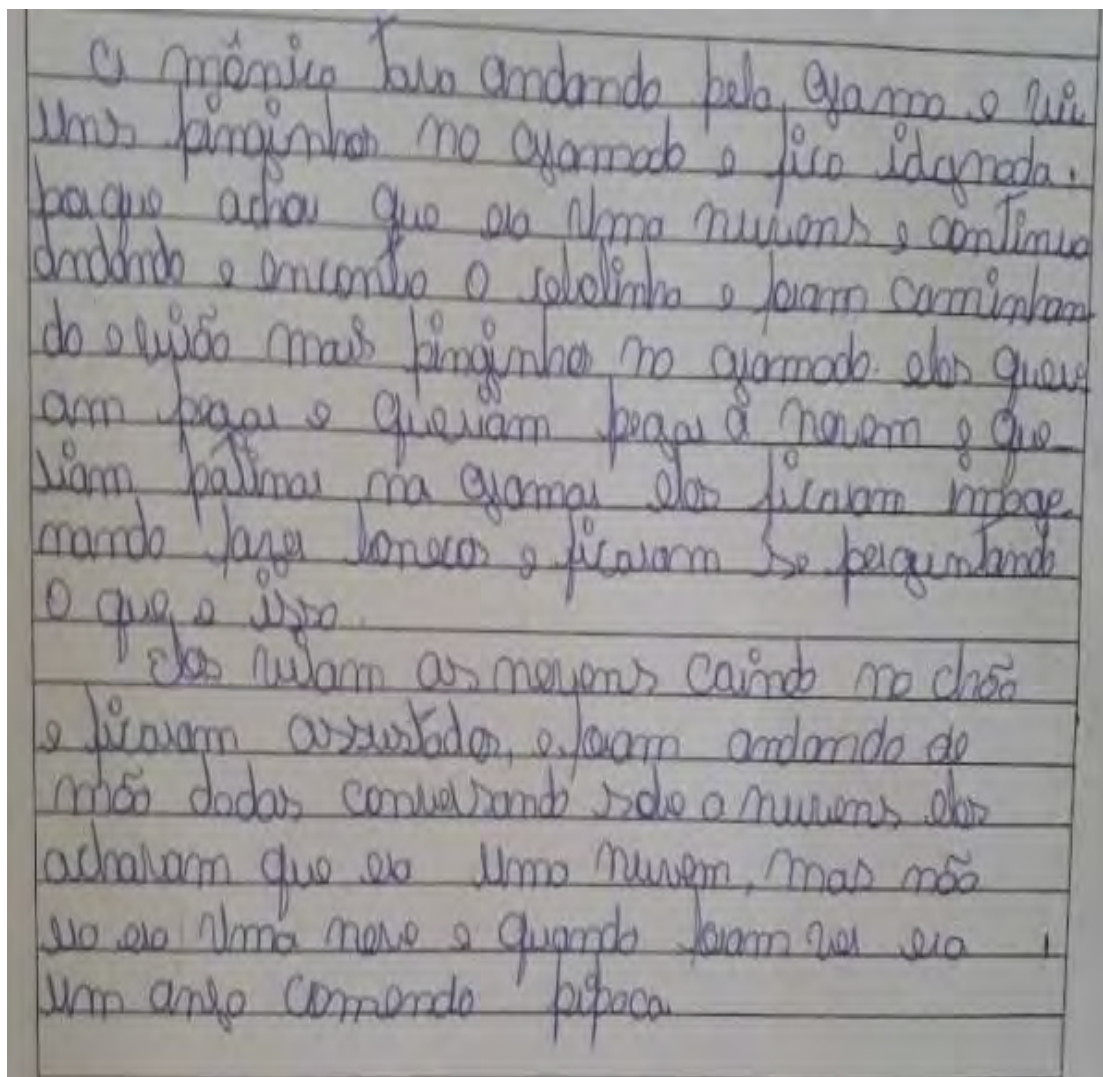 A mônica tava andando pela grama e viu
uns pinginhos no gramado e fico idgnada.
porque achou que era uma nuvens e continuo
andando e encontro o sebolinha e foram caminhan
do e vijão mais pinginhos no gramado. eles queri
am pegar e queriam pegar a nevem e que
riam patinar na gramar eles ficaram image
nando fazer bonecos e ficaram se perguntando
o que e isso.
eles viram as nevens caindo no chão
e ficaram assustados, e foram andando de
mão dadas conversando sobre a nuvens eles
acharam que era uma nuvem, mas não
era uma neve e quando foram ver era
um anjo comendo pipoca